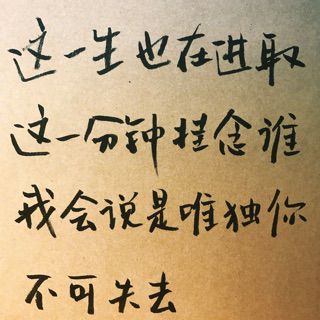 这一生也在进取
这一分钟挂念谁
我会说是唯独你
不可失去